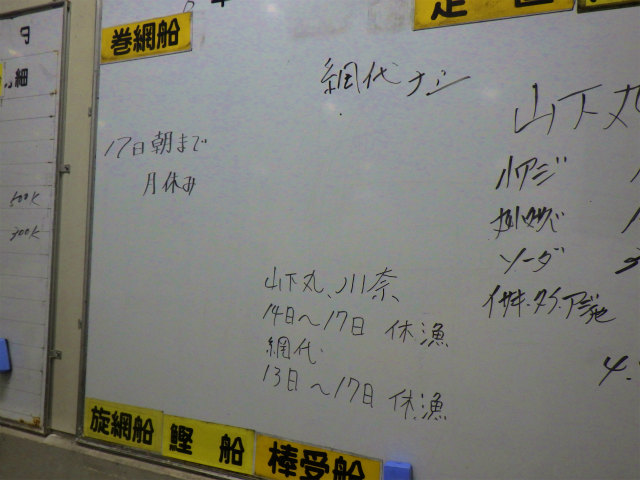 細
500K
300K
巻網船
網代 ナシ
17日朝まで
月休み
山下丸
小アジ
ソーダ
山下丸、川奈
14日～17日 休漁
網代
13日～17日 休漁
旋網船
鰹船
棒受船